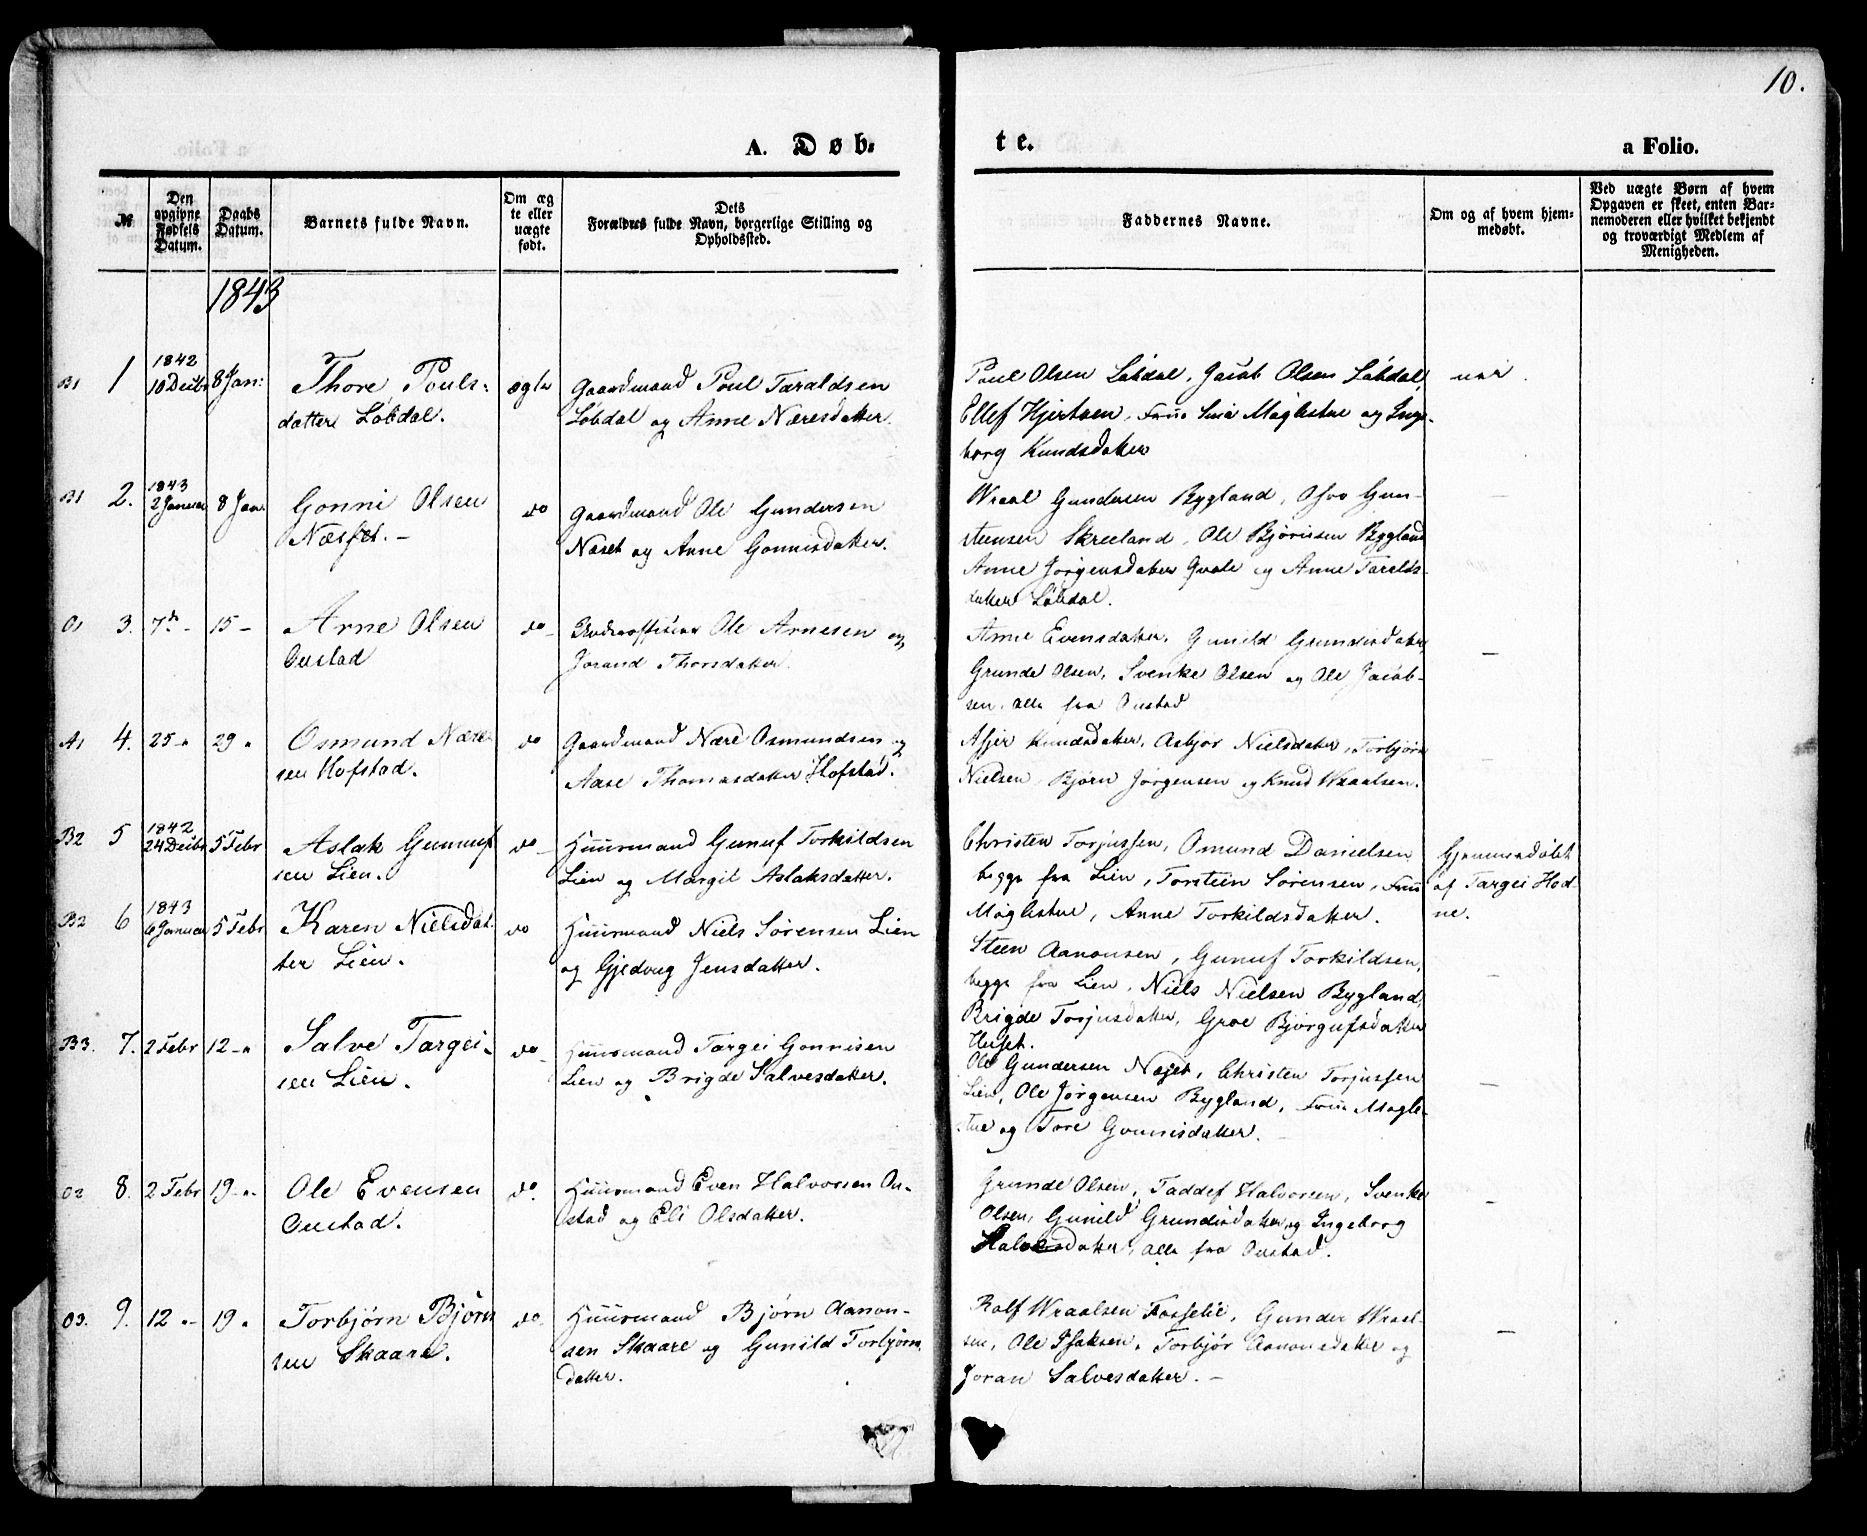 10.
A. Døb-
te.
a Folio.
№
Den
opgivne
Fødsels
Datum.
Daabs
Datum.
Barnets fulde Navn.
Om æg
te eller
uægte
født.
Dets
Forældres fulde Navn, borgerlige Stilling og
Opholdssted.
Faddernes Navne.
Om og af hvem hjem-
medøbt.
Ved uægte Børn af hvem
Opgaven er skeet, enten Bar-
nemoderen eller hvilket bekjendt
og troværdigt Medlem af
Menigheden.
1843
B1 1 1842
10 Decbr 8 Jan:
Thore Pouls-
datter Løbdal.
ægte
Gaardmand Poul Taraldsen
Løbdal og Anne Næresdatter.
Poul Olsen Løbdal, Jacob Olsen Løbdal,
Ellef Hjertsen, Møglestue og Inge-
borg Knudsdatter
B1 2. 1843
2 Januar 8 Jan
Gonni Olsen
Næsset. –
do
Gaardmand Ole Gundersen
Næset og Anne Gonnisdatter.
Wraal Gundersen Bygland, Gun-
steensen Skreeland, Ole Bjørnsen Bygland
Anne Jørgensdatter Qvale og Anne Taralds-
datter Løbdal.
–
O1 3. 7de - 15 –
Arne Olsen
Oustad
do –
Underofficier Ole Arnesen og
Jorand Thorsdatter.
Anne Evensdatter, Gunild Grundesdatter,
Grunde Olsen, Svenke Olsen og Ole Jacob-
sen, alle fra Oustad
–
A1 4. 25 - " 29 "
Osmund Nære-
sen Hofstad.
do
Gaardmand Nære Osmundsen og
Aase Thomasdatter Hofstad.
Asjer Knudsdatter, Asbjør Nielsdatter, Torbjørn
Nielsen, Bjørn Jørgensen og Knud Wraalsen.
–
B2 5 1842
24 Decbr 5 Febr
Aslak Gunuf-
sen Lien.
do –
Huusmand Gunuf Torkildsen
Lien og Margit Aslaksdatter.
Christen Torjussen, Osmund Danielsen
begge fra Lien, Torsteen Sørensen,
Møglestue, Anne Torkildsdatter.
Hjemmedøbt
af Targei Hod-
ne.
B2 6 1843
6 Januar 5 Febr
Karen Nielsdat-
ter Lien.
do
Huusmand Niels Sørensen Lien
og Gjedvug Jensdatter.
Steen Aanonsen, Gunuf Torkildsen,
begge fra Lien, Niels Nielsen Bygland,
Brigde Torjusdatter, Groe Bjørgufsdatter
–
B3. 7. 2 Febr 12 - "
Salve Targei-
sen Lien.
do –
Huusmand Targei Gonnisen
Lien og Brigde Salvesdatter.
Ole Gundersen Næset, Christen Torjussen
Lien, Ole Jørgensen Bygland, Møgle-
stue og Tore Gonnisdatter.
–
O2 8. 2 Febr 19 - "
Ole Evensen
Oustad.
do.
Huusmand Even Halvorsen Ou-
stad og Eli Olsdatter.
Grunde Olsen, Taddef Halvorsen, Svenke
Olsen, Gunild Grundesdatter og Ingeborg
alle fra Oustad.
–
O3. 9. 12 " – 19 "
Torbjørn Bjørn
sen Skaare.
do.
Huusmand Bjørn Aanon-
sen Skaare og Gunild Torbjørns
datter.
Rolf Wraalsen Fosselie, Gunder Wraal-
sen, Ole Isaksen, Torbjør Aanonsdatter og
Joran Salvesdatter. –
–